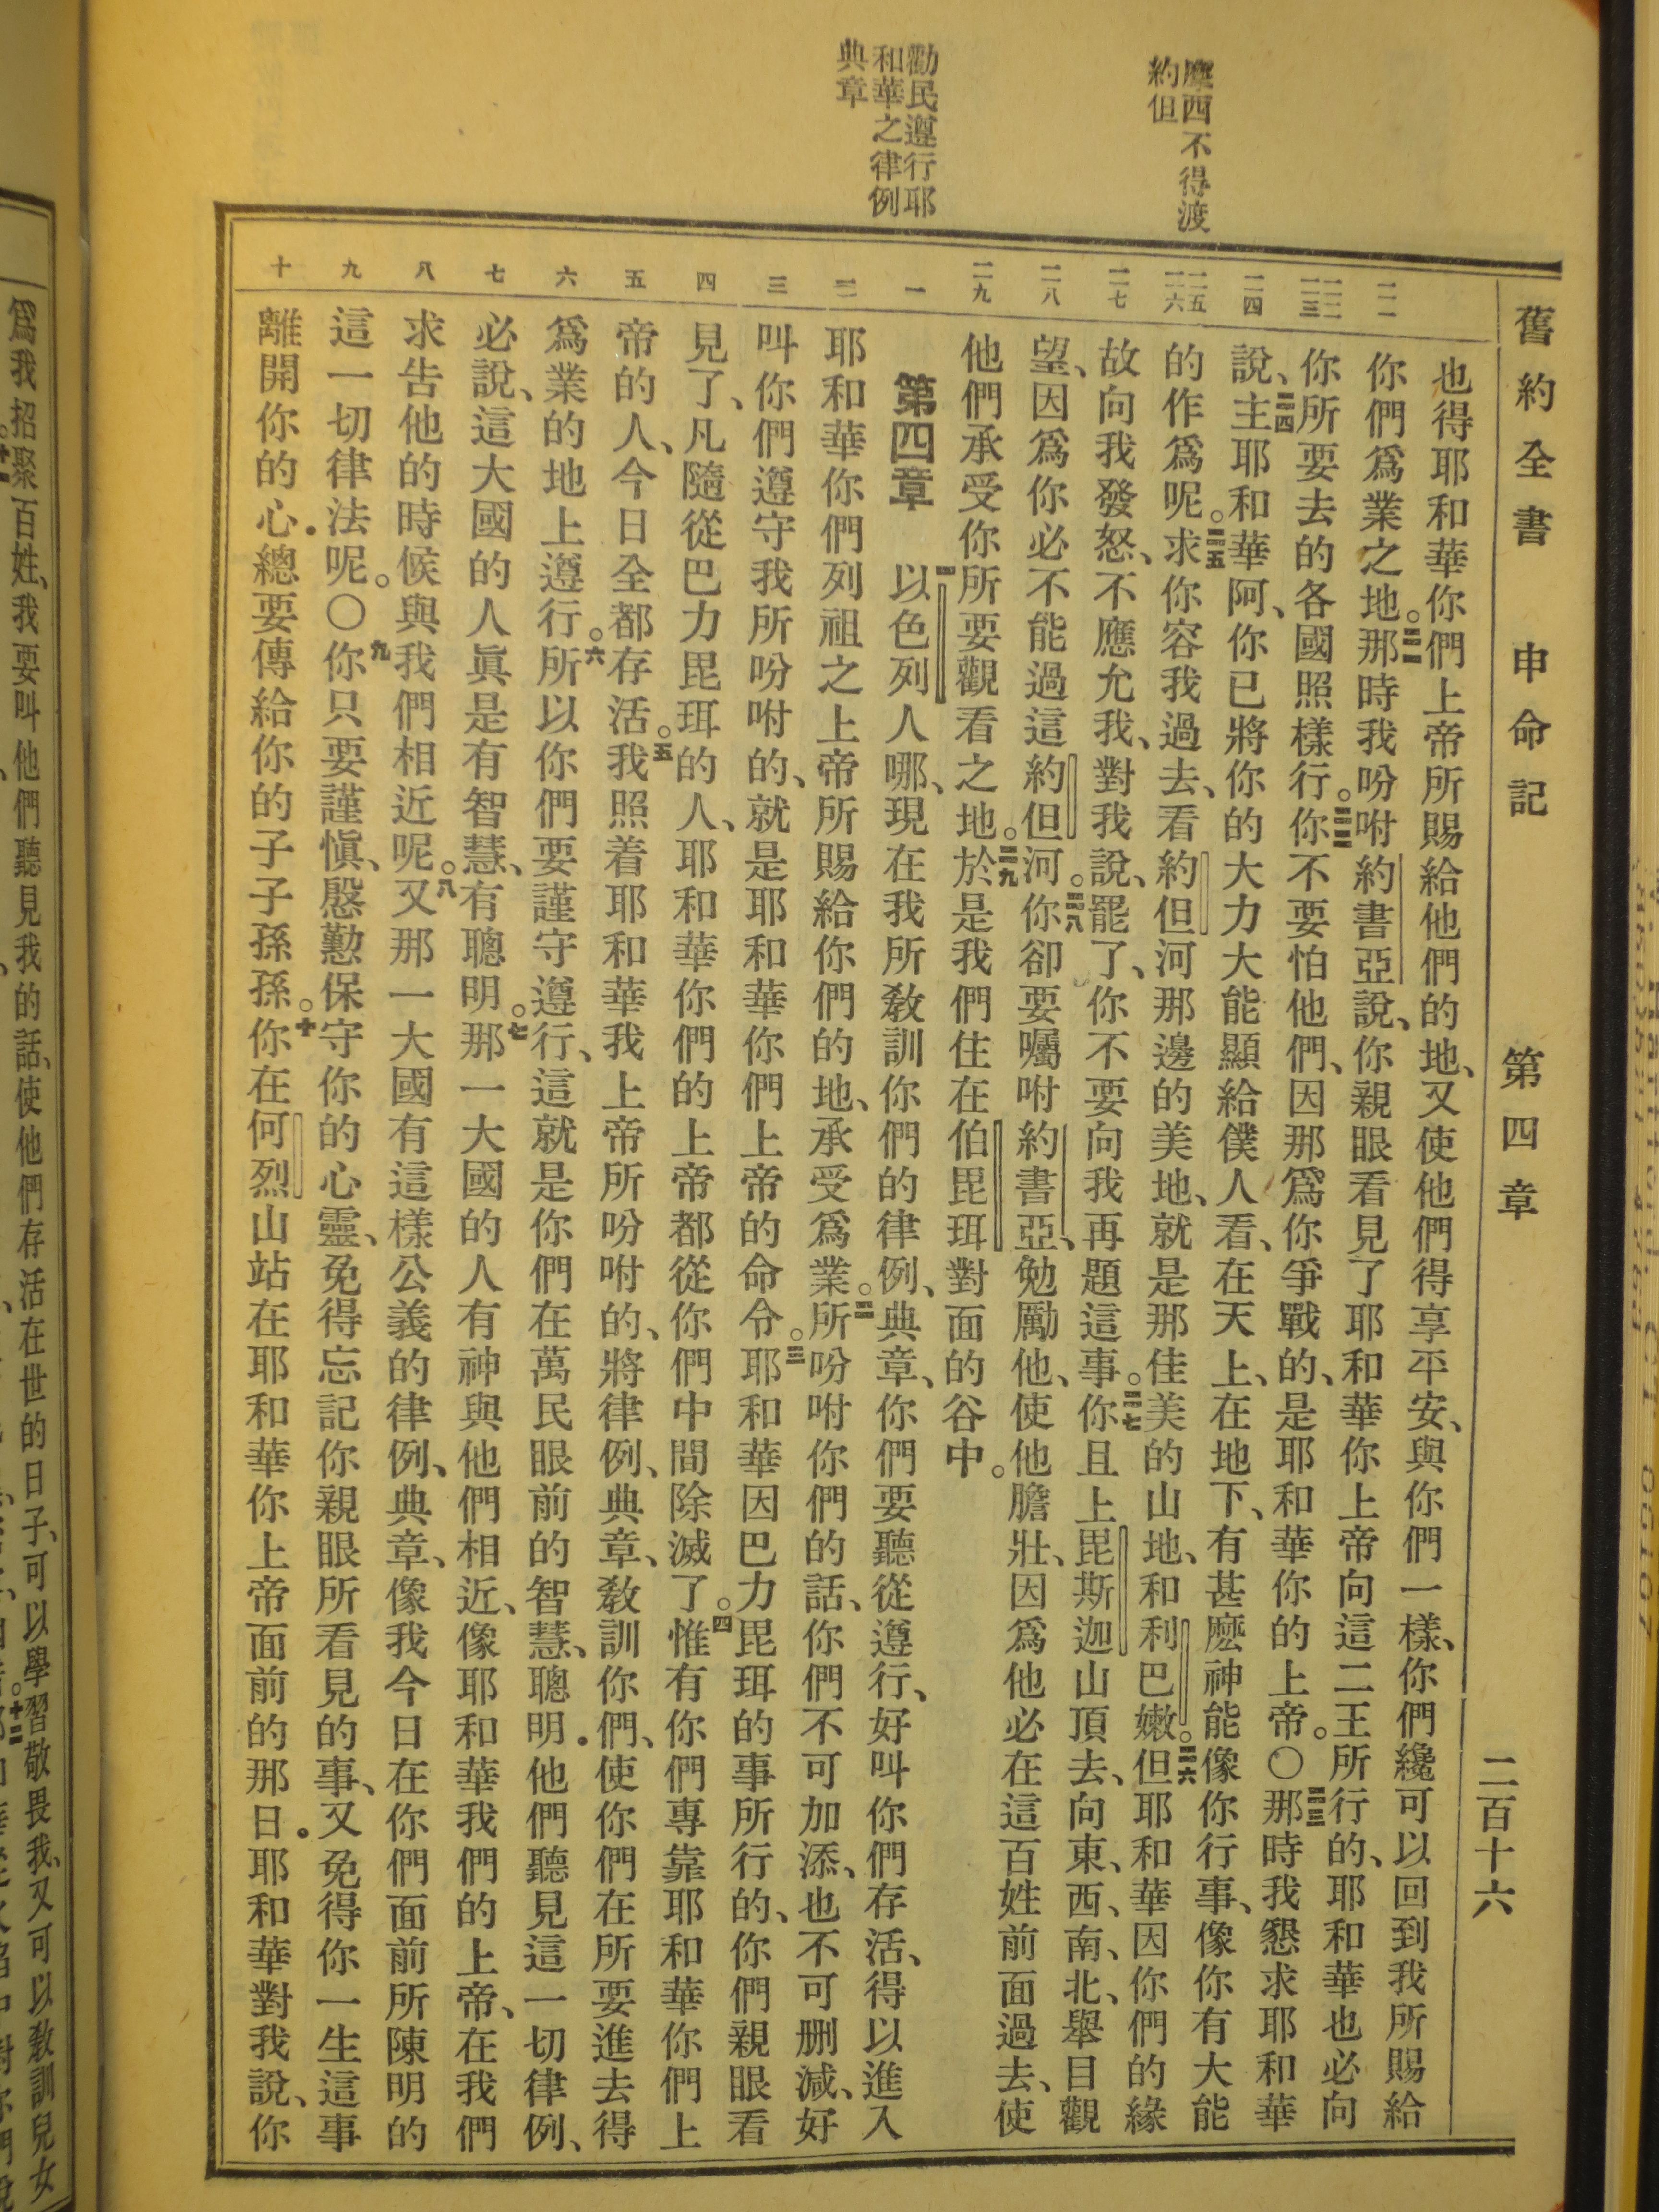 舊約全書 申命記 第四章 二百十六
摩西不得渡
約但
勸民遵行耶
和華之律例
典章
二一
二二
二三
二四
二五
二六
二七
二八
二九
一
二
三
四
五
六
七
八
九
十
也得耶和華你們上帝所賜給他們的地、又使他們得享平安、與你們一樣、你們纔可以回到我所賜給
你們爲業之地。二一那時我吩咐約書亞說、你親眼看見了耶和華你上帝向這二王所行的、耶和華也必向
你所要去的各國照樣行。二二你不要怕他們、因那爲你爭戰的、是耶和華你的上帝。〇二三那時我懇求耶和華
說、二四主耶和華阿、你已將你的大力大能顯給僕人看、在天上、在地下、有甚麽神能像你行事、像你有大能
的作爲呢。二五求你容我過去、看約但河那邊的美地、就是那佳美的山地、和利巴嫩。二六但耶和華因你們的緣
故向我發怒、不應允我、對我說、罷了、你不要向我再題這事。二七你且上毘斯迦山頂去、向東、西、南、北、舉目觀
望、因爲你必不能過這約但河。二八你卻要囑咐約書亞、勉勵他、使他膽壯、因爲他必在這百姓前面過去、使
他們承受你所要觀看之地。二九於是我們住在伯毘珥對面的谷中。
第四章 一以色列人哪、現在我所敎訓你們的律例、典章、你們要聽從遵行、好叫你們存活、得以進入
耶和華你們列祖之上帝所賜給你們的地、承受爲業。二所吩咐你們的話、你們不可加添、也不可删減、好
叫你們遵守我所吩咐的、就是耶和華你們上帝的命令。三耶和華因巴力毘珥的事所行的、你們親眼看
見了、凡隨從巴力毘珥的人、耶和華你們的上帝都從你們中間除滅了。四惟有你們專靠耶和華你們上
帝的人、今日全都存活。五我照着耶和華我上帝所吩咐的、將律例、典章、敎訓你們、使你們在所要進去得
爲業的地上遵行。六所以你們要謹守遵行、這就是你們在萬民眼前的智慧、聰明．他們聽見這一切律例、
必說、這大國的人眞是有智慧、有聰明。七那一大國的人有神與他們相近、像耶和華我們的上帝、在我們
求告他的時候與我們相近呢。八又那一大國有這樣公義的律例、典章、像我今日在你們面前所陳明的
這一切律法呢。〇九你只要謹愼、慇懃保守你的心靈、免得忘記你親眼所看見的事、又免得你一生這事
離開你的心．總要傳給你的子子孫孫。十你在何烈山站在耶和華你上帝面前的那日．耶和華對我說、你
爲我招聚百姓、我要叫他們聽見我的話、使他們存活在世的日子、可以學習敬畏我、又可以敎訓兒女